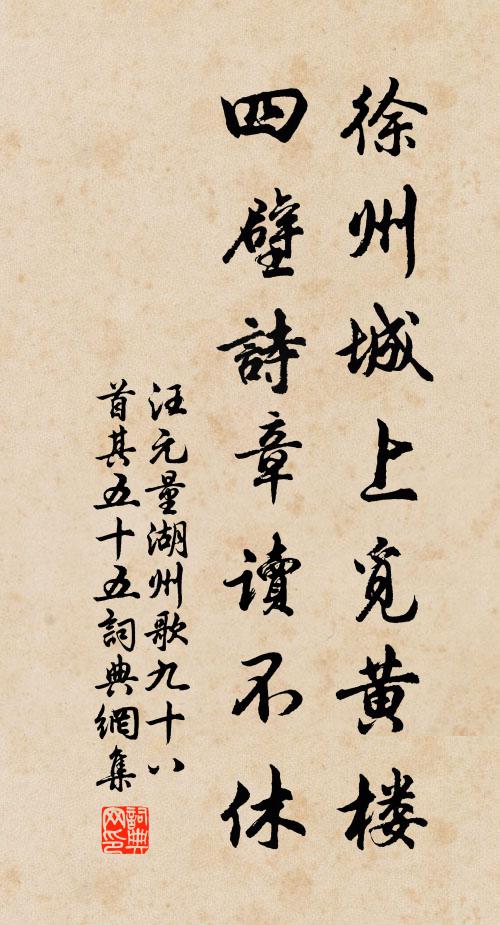 徐州城上覓黄楼
四壁詩章讀不休
汪元量湖州歌九十八
首其五十五詞典網集
詞典网印